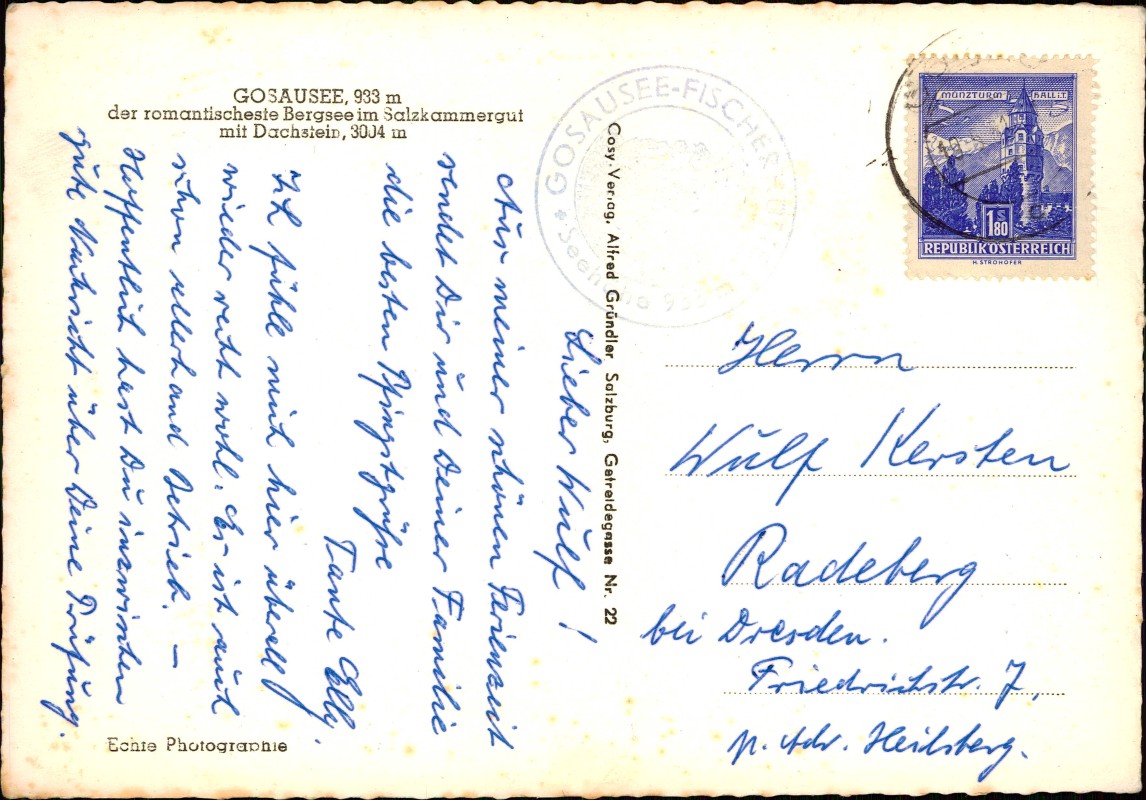 GOSAUSEE, 933 m
der romantischeste Bergsee im Salzkammergut
mit Dachstein, 3004 m
Lieber Wulf!
Aus meiner schönen Ferienzeit
sendet Dir und Deiner Familie
die besten Pfingstgrüße
Tante Elly.
Ich fühle mich hier überall
wieder recht wohl. Es ist auch
schon allerhand Betrieb. –
Hoffentlich hast Du inzwischen
gute Nachricht über Deine Prüfung.
Echte Photographie
Cosy-Verlag, Alfred Gründler Salzburg, Getreidegasse Nr. 22
GOSAUSEE-FISCHER
Seehöhe 933
MÜNZTURM HALL i.T.
1 S 80
REPUBLIK ÖSTERREICH
H. STROHOFER
Herrn
Wulf Kersten
Radeberg
bei Dresden.
Friedrichstr. 7,
p. Adr. Heilsberg.